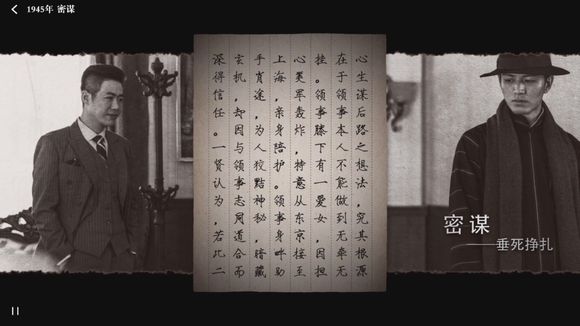 1945年 密谋
心生谋后路之想法，究其根源
在于领事本人不能做到无牵无
挂。领事膝下有一爱女，因担
心美军轰炸，特意从东京接至
上海，亲身陪护。领事身畔助
手肖途，为人狡黠神秘，暗藏
玄机，却因与领事志同道合而
深得信任。一贤认为，若此二
密谋
——垂死挣扎